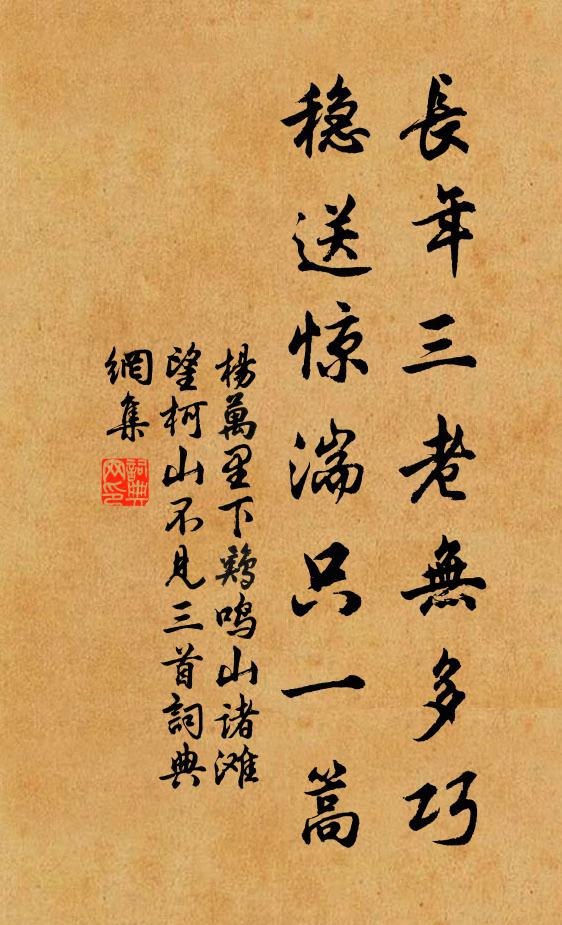 長年三老無多巧
穩送惊湍只一篙
楊萬里下鷄鳴山诸滩
望柯山不見三首詞典
網集
詞典
网印